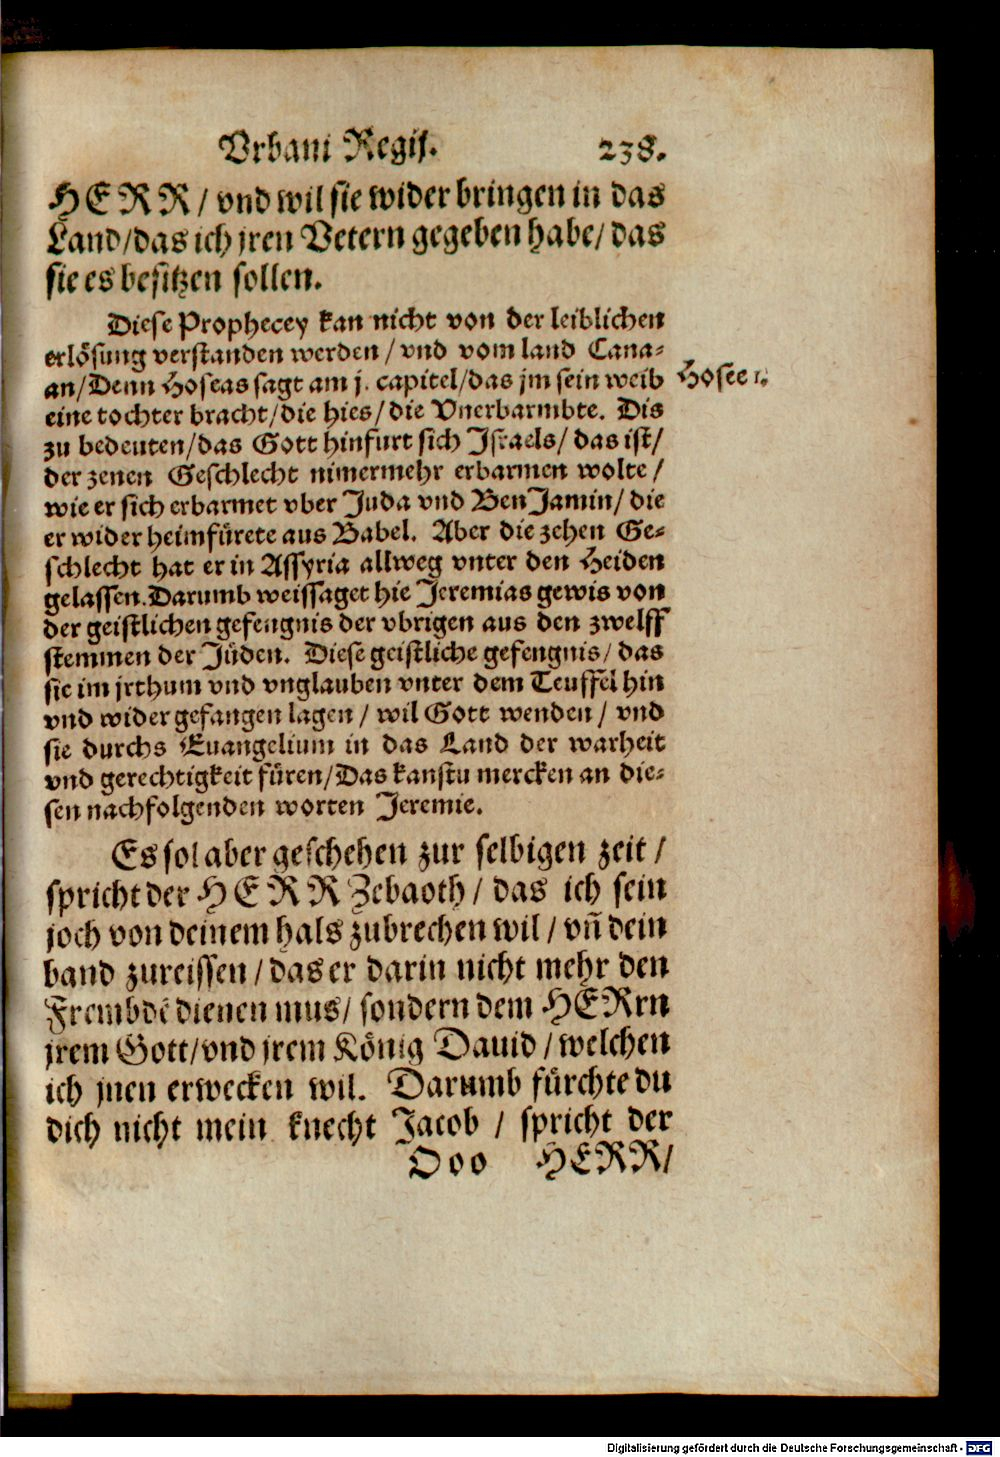 Vrbani Regij. 238.
HERR / vnd wil sie wider bringen in das
Land/das ich jren Vetern gegeben habe/ das
sie es besitzen sollen.
Diese Prophecey kan nicht von der leiblichen
erlösung verstanden werden / vnd vom land Cana-
an/Denn Hoseas sagt am j. capitel/das jm sein weib
Hosee 1.
eine tochter bracht/die hies/die Vnerbarmbte. Dis
zu bedeuten/das Gott hinfurt sich Israels/ das ist/
der zenen Geschlecht nimermehr erbarmen wolte /
wie er sich erbarmet vber Juda vnd BenJamin/ die
er wider heimfürete aus Babel. Aber die zehen Ge-
schlecht hat er in Assyria allweg vnter den Heiden
gelassen.Darumb weissaget hie Jeremias gewis von
der geistlichen gefengnis der vbrigen aus den zwelff
stemmen der Jüden. Diese geistliche gefengnis/ das
sie im jrthum vnd vnglauben vnter dem Teuffel hin
vnd wider gefangen lagen / wil Gott wenden / vnd
sie durchs Euangelium in das Land der warheit
vnd gerechtigkeit füren/Das kanstu mercken an die-
sen nachfolgenden worten Jeremie.
Es sol aber geschehen zur selbigen zeit /
spricht der HERR Zebaoth / das ich sein
joch von deinem hals zubrechen wil / vñ dein
band zureissen / das er darin nicht mehr den
Frembdē dienen mus/ sondern dem HERrn
jrem Gott/vnd jrem König Dauid / welchen
ich jnen erwecken wil. Darumb fürchte du
dich nicht mein knecht Jacob / spricht der
Ooo HERR/
Digitalisierung gefördert durch die Deutsche Forschungsgemeinschaft - DFG